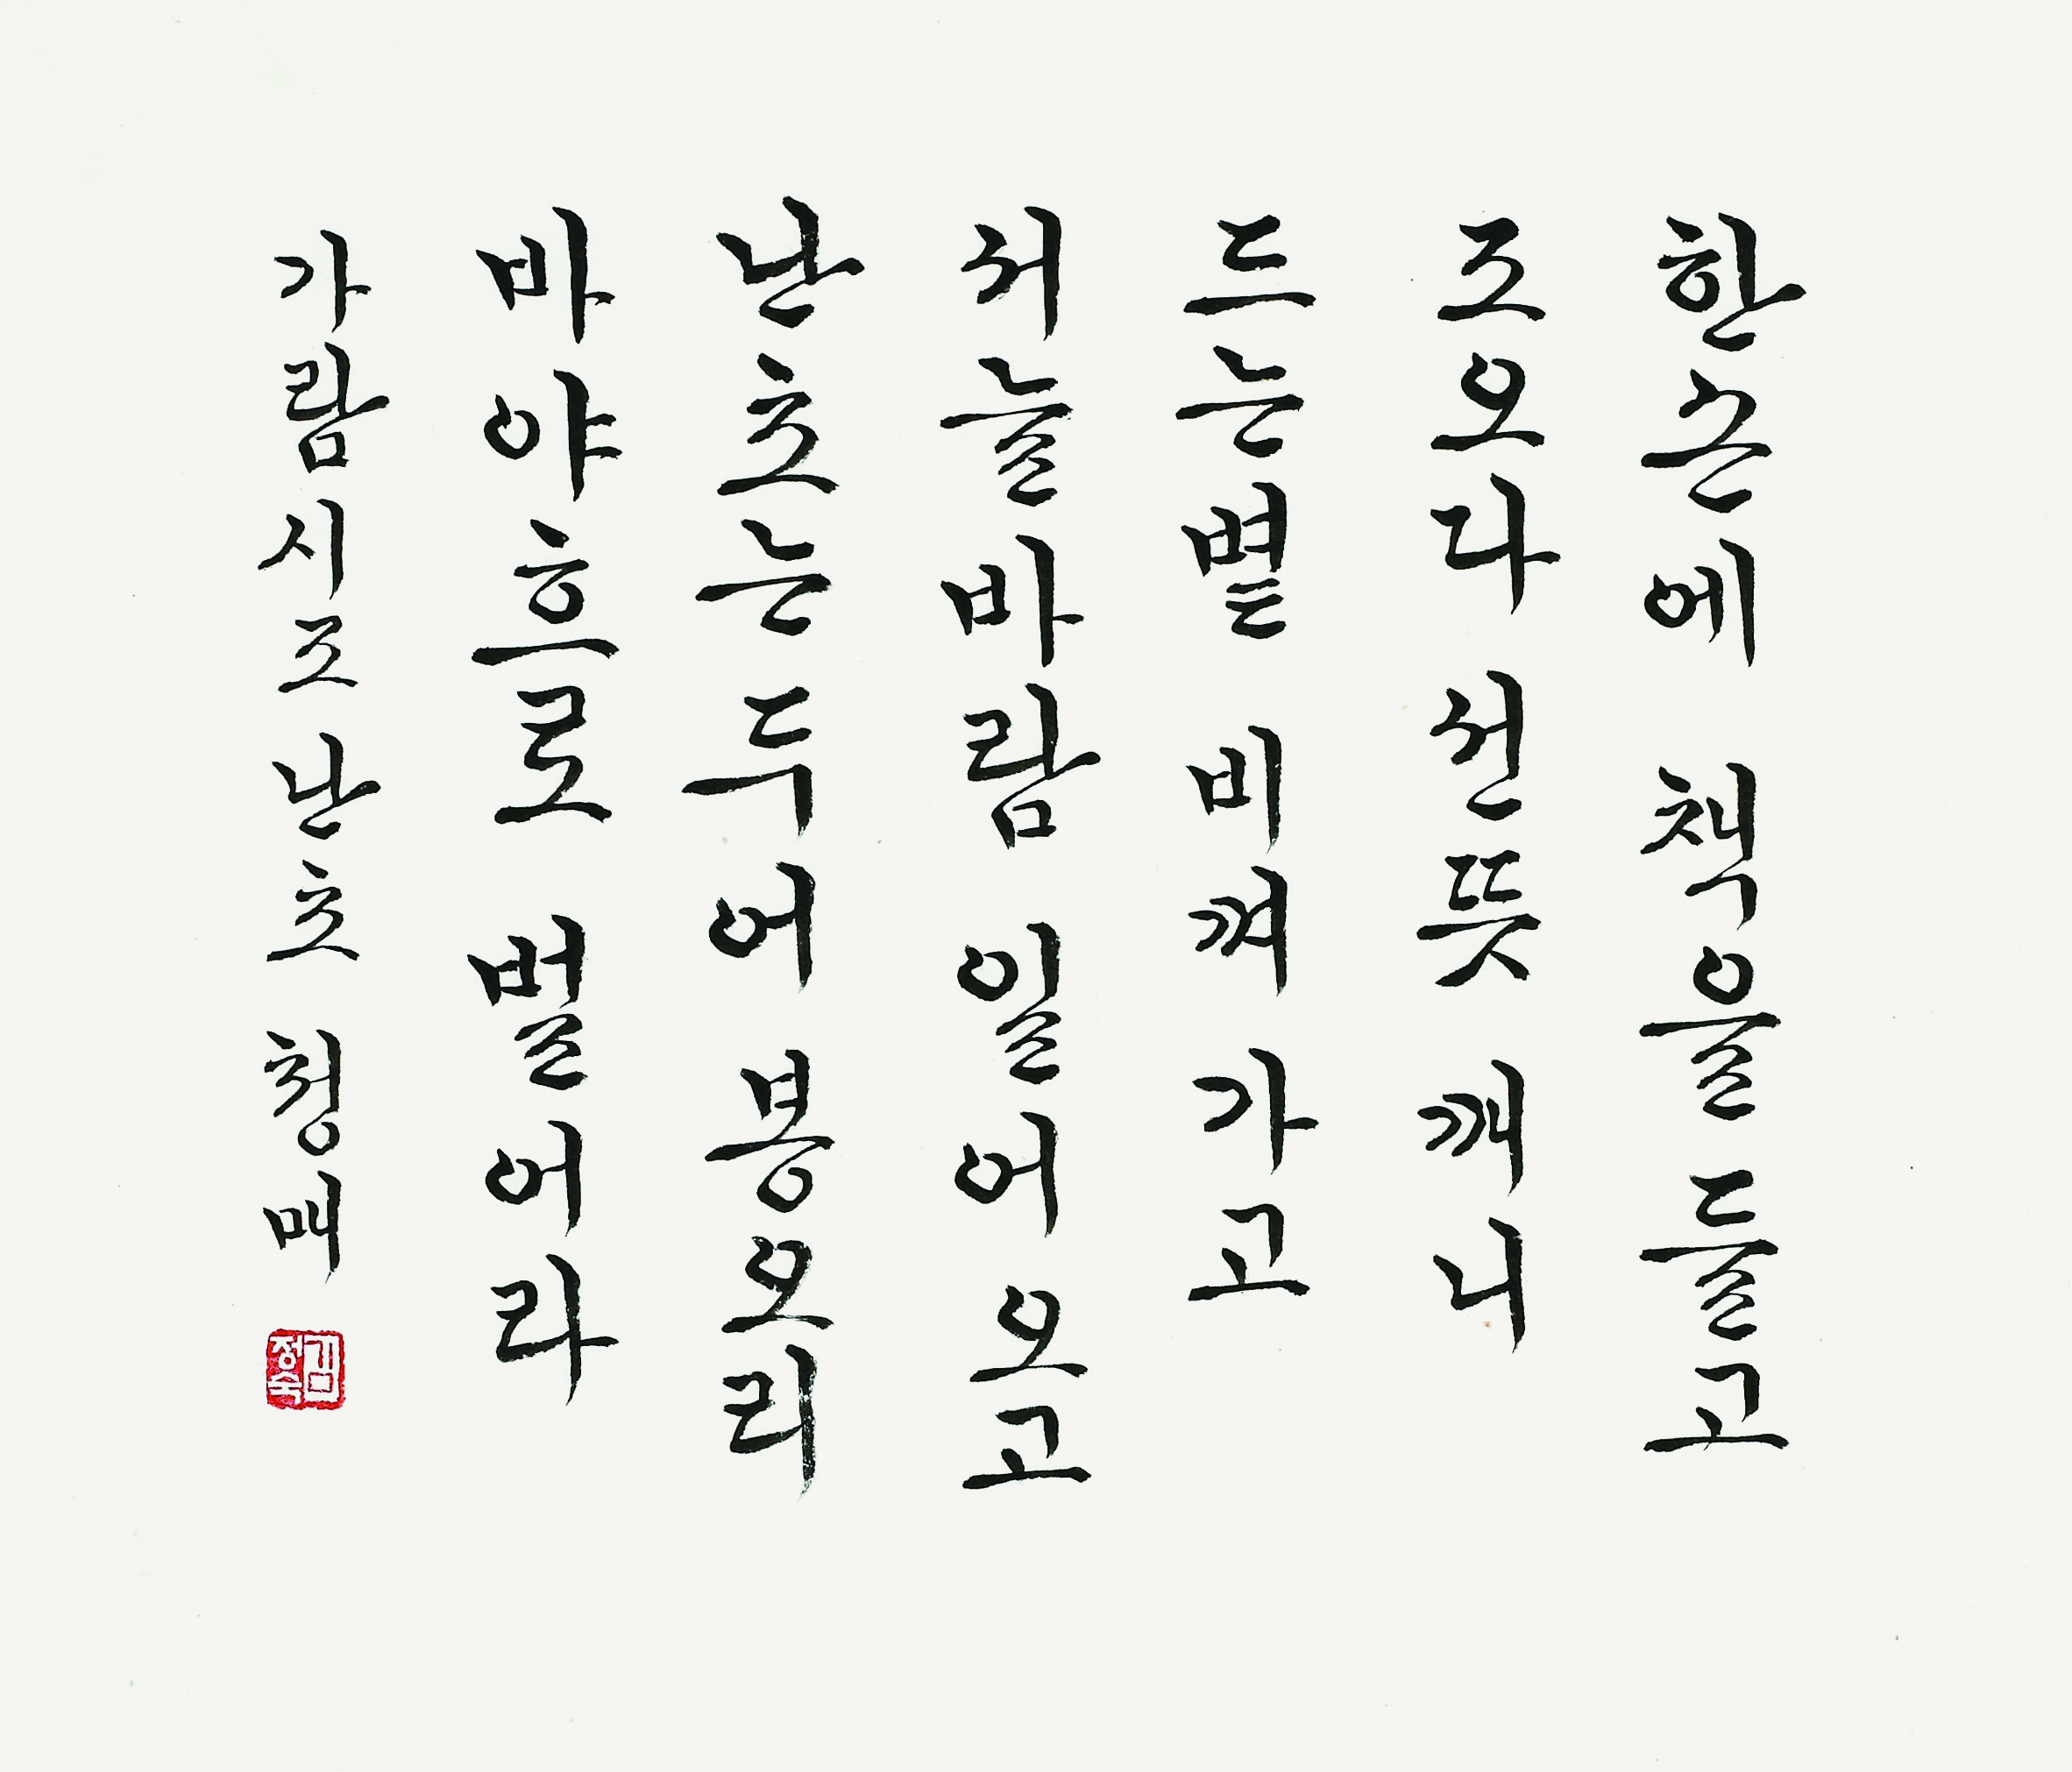 한손에 책을들고
조오다 선뜻 깨니
드는볕 비껴 가고
서늘바람 일어 오고
난초는두어 봉오리
바야흐로 벌어라
가람시조난초 청매
김정숙